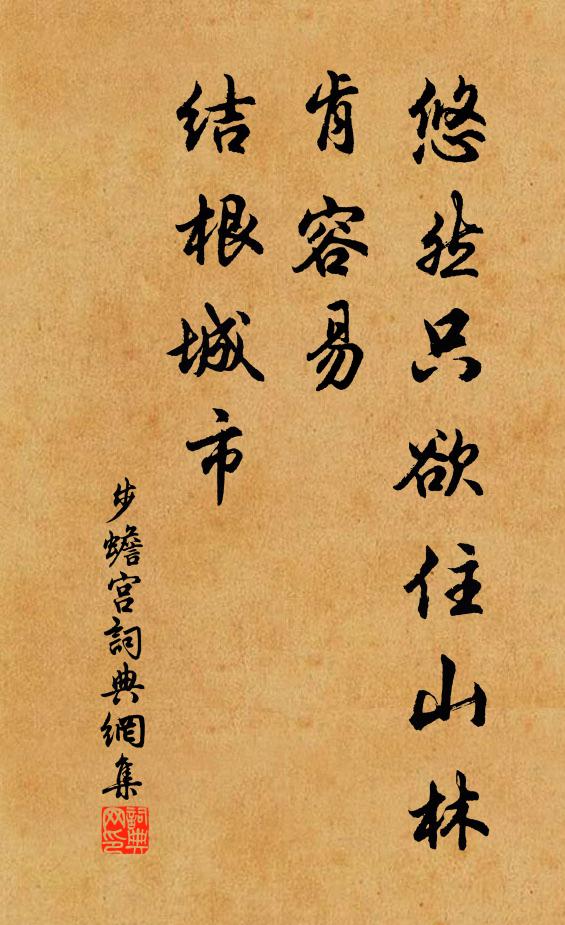 悠然只欲住山林
肯容易
结根城市
步蟾宫詞典網集
詞典网印